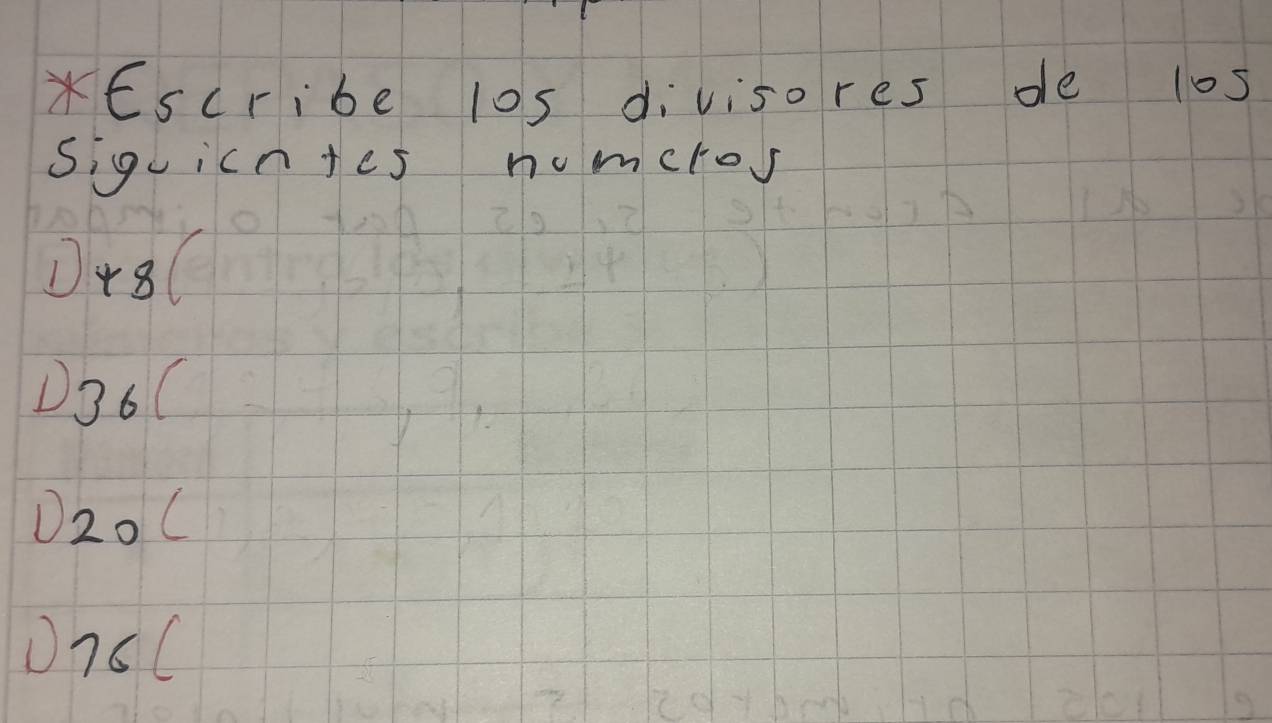 *Escribe los divisores de los
siguientes numeros
D48(
D36(
D20(
D76(